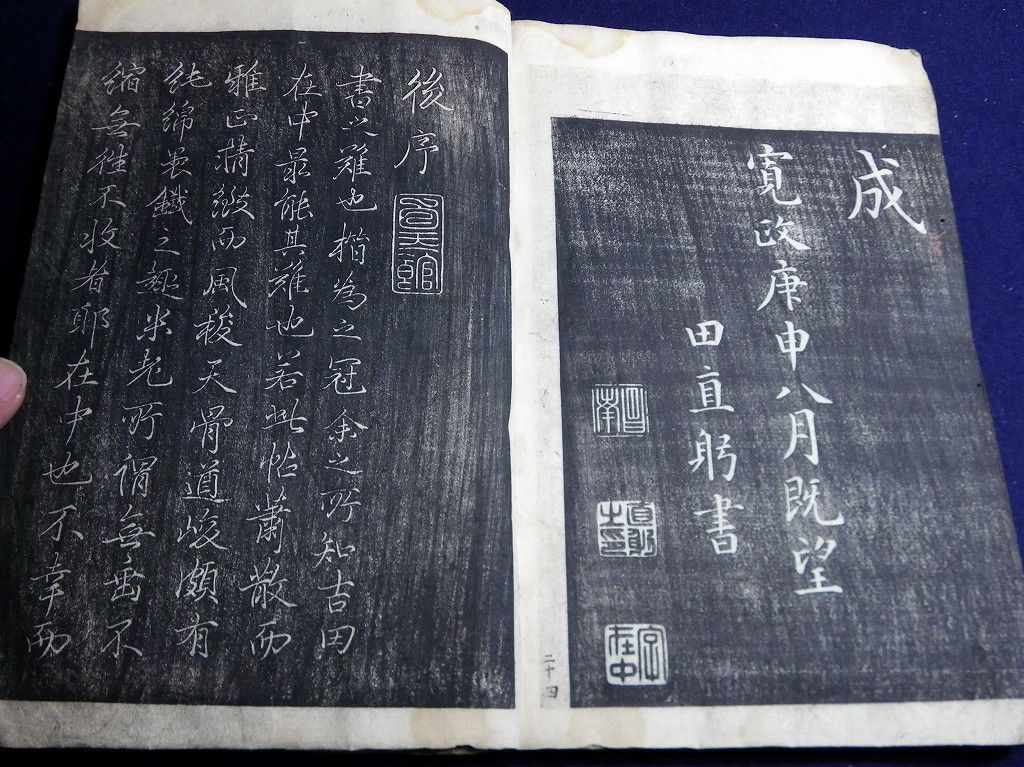 成
寛政庚申八月既望
田直躬書
字在中
二十四
後序
書之難也楷為之冠余之所知吉田
在中最能其難也若此帖蕭散而
雅正精緻而風稜天骨遒峻頗有
純綿裹鐵之趣米老所謂無垂不
縮無往不收者耶在中也不幸而